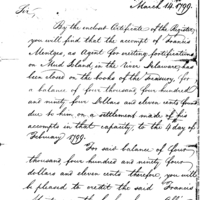 March 14. 1799.
Sir,
By the enclosed Certificate of the Register
you will find that the accompt of Francis
Mentges, as Agent for erecting fortifications
on Mud Island, in the river Delaware, has
been closed on the books of the Treasury, for
a balance of four thousand, four hundred and
ninety four Dollars and eleven cents found
due to him, on a settlement made of his
accompts in that capacity, to the day of
February 1799.
For said balance of four
thousand, four hundred and ninety four
dollars and eleven cents therefore, you will
be pleased to credit the said Francis